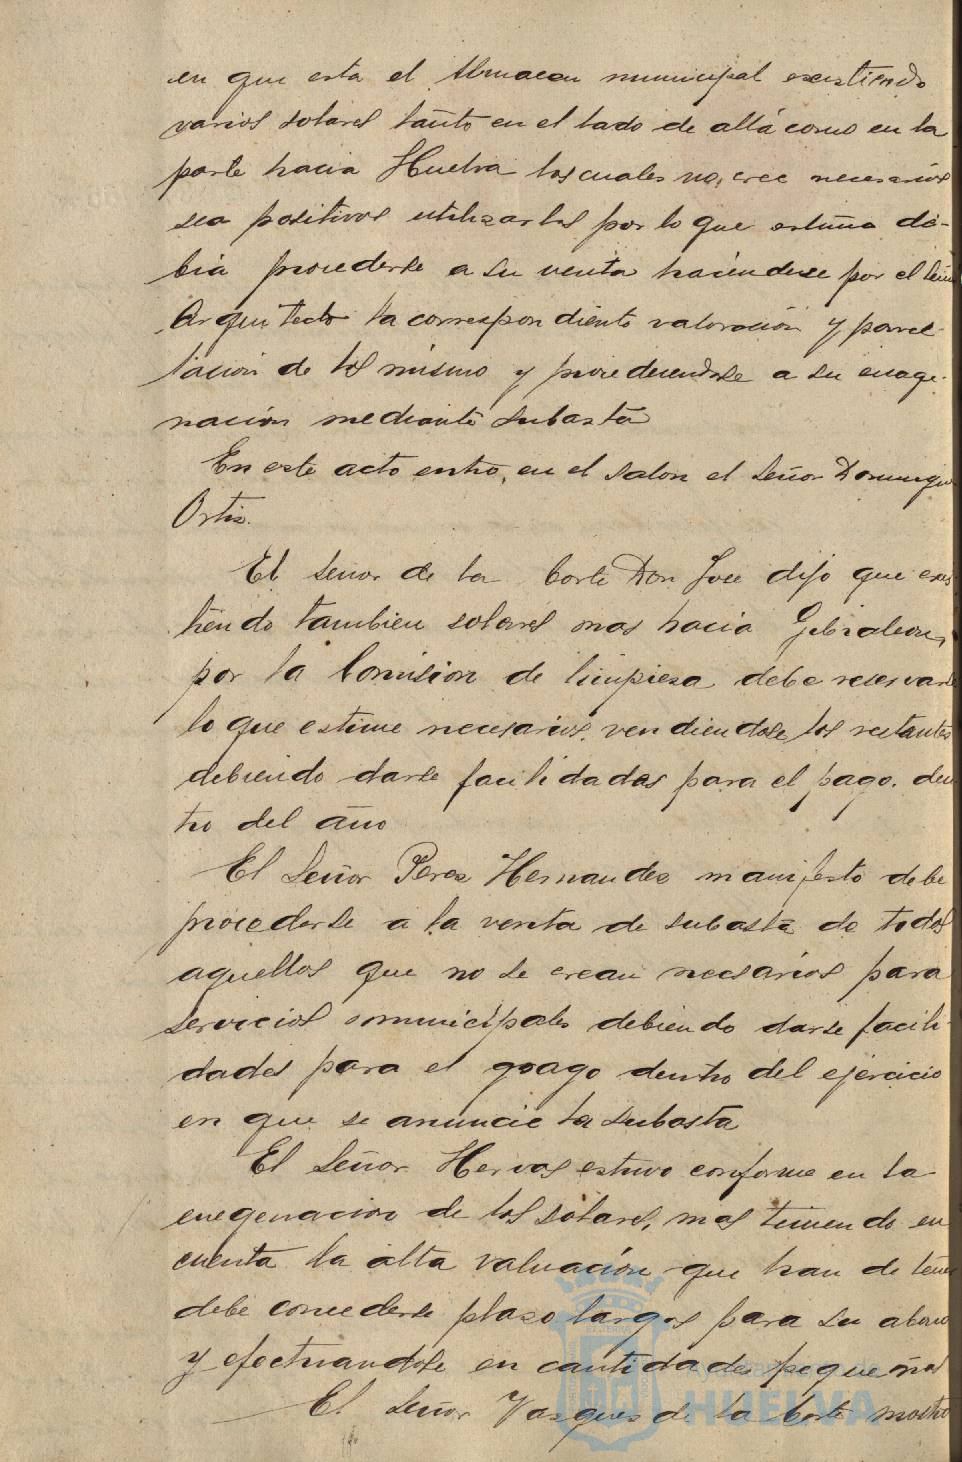 en que esta el Almacen municipal existiendo
varios solares tanto en el lado de allá como en la
parte hacia Huelva los cuales no cree necesarios
sea positivos utilizarlos por lo que estima de-
bia procederse a su venta haciendose por el Señor
Arquitecto la correspondiente valoración y parce-
lacion de los mismo y procediendose a su enage-
nación mediante subasta
En este acto entro, en el salon el Señor Dominguez
Ortiz.
El Señor de la Corte Don Jose dijo que exis
tiendo tambien solares mas hacia Gibraleon,
por la Comision de limpieza debe reservarse
lo que estime necesarios. vendiendose los restantes
debiendo darse facilidades para el pago. den
tro del año
El Señor Perez Hernandez manifesto debe
procederse a la venta de subasta de todos
aquellos que no se crean necesarios para
servicios municipales debiendo darse facili-
dades para el pago dentro del ejercicio
en que se anuncie la subasta
El Señor Hervas estuvo conforme en la
enegenacion de los solares, mas teniendo en
cuenta la alta valuación que han de tener
debe concederse plazo largos para su abono
y efectuandose en cantidades pequeñas
El Señor Vazquez de la Corte mostro
HUELVA